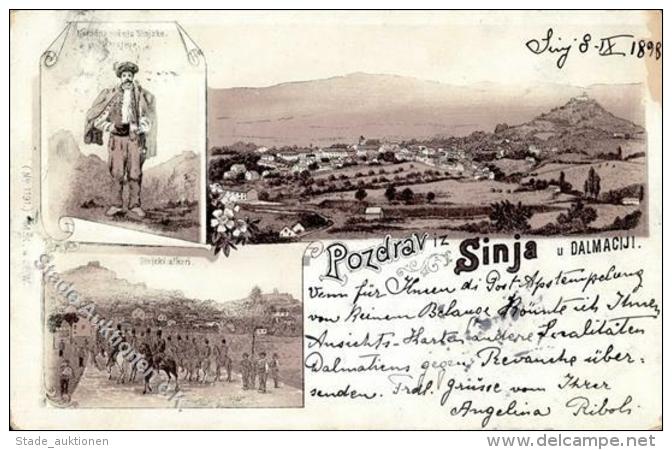 Narodna nošnja Sinjske
Sinj 8-IX 1898
Pozdrav iz Sinja u DALMACIJI.
Sinjski alkari
Wenn für Ihnen di Post-Abstempelung
von keinem Belange könnte ich Ihnen
Ansichts-Karten andere Localitäten
Dalmatiens gegen Revanche über-
senden. Frdl. Grüsse vom Ihrer
Angelina Riboli
Stade_auktionen
www.delcampe.net
Stade-Auktionen